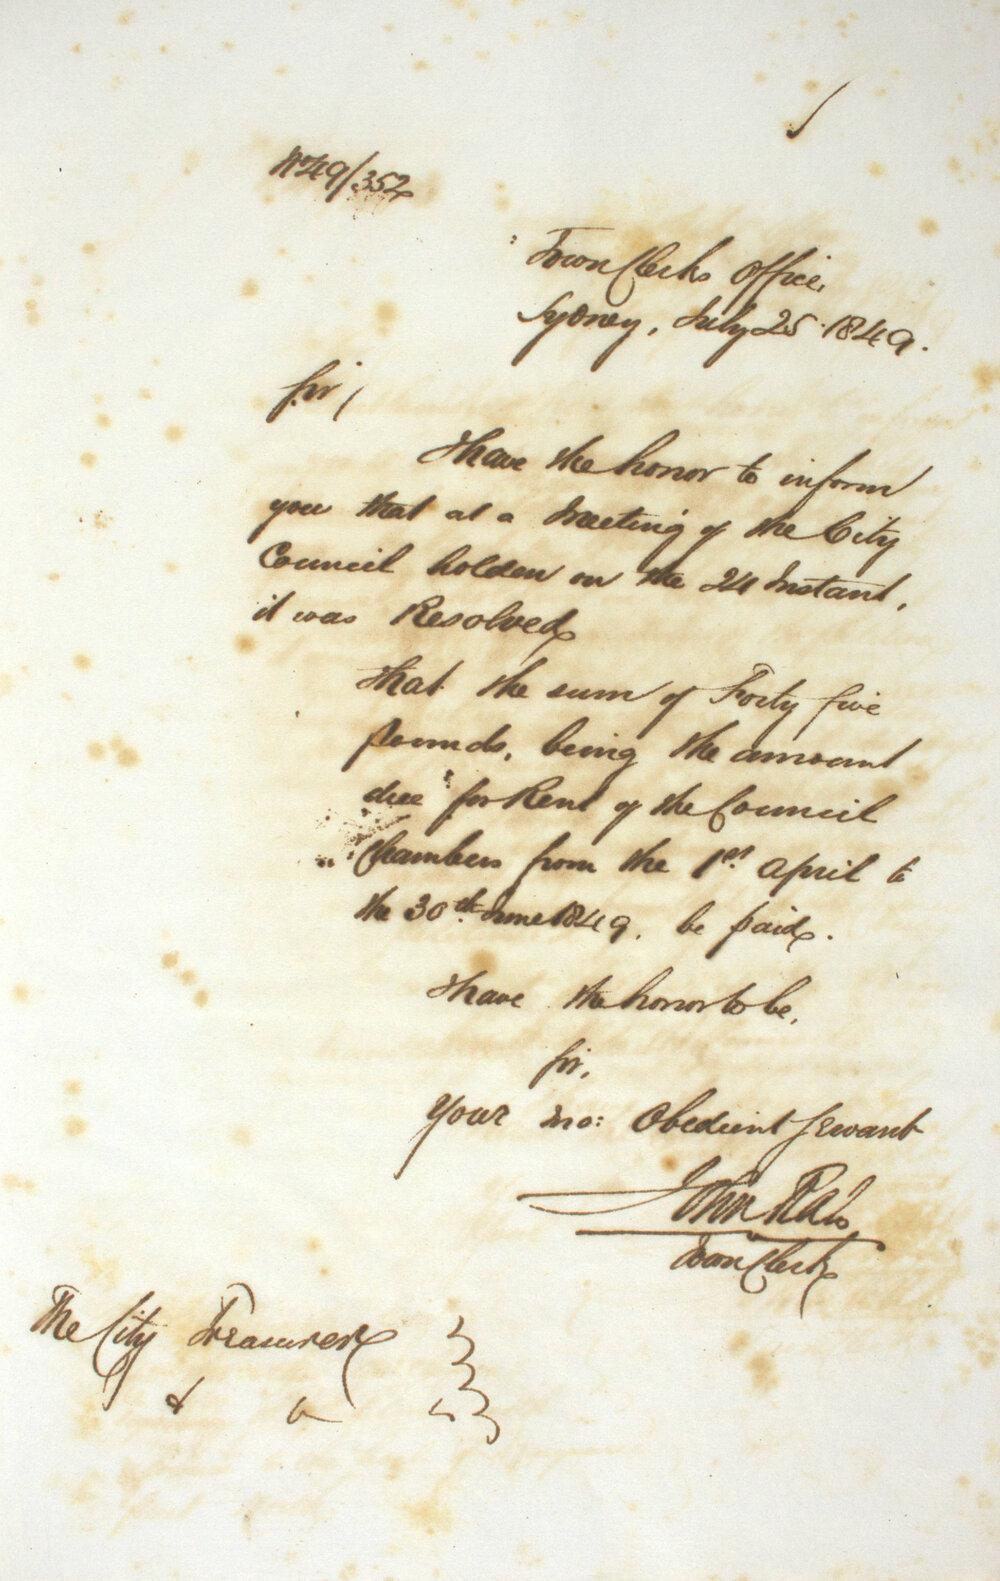 No 49/352
Town Clerks Office,
Sydney, July 25. 1849.
Sir,
I have the honor to inform
you that at a Meeting of the City
Council holden on the 24 Instant,
it was Resolved
That the sum of Forty five
Pounds, being the amount
due for Rent of the Council
Chambers from the 1st. April to
the 30th. June 1849, be paid.
I have the honor to be,
Sir,
Your mo: Obedient Servant
John Rae
Town Clerk
The City Treasurer